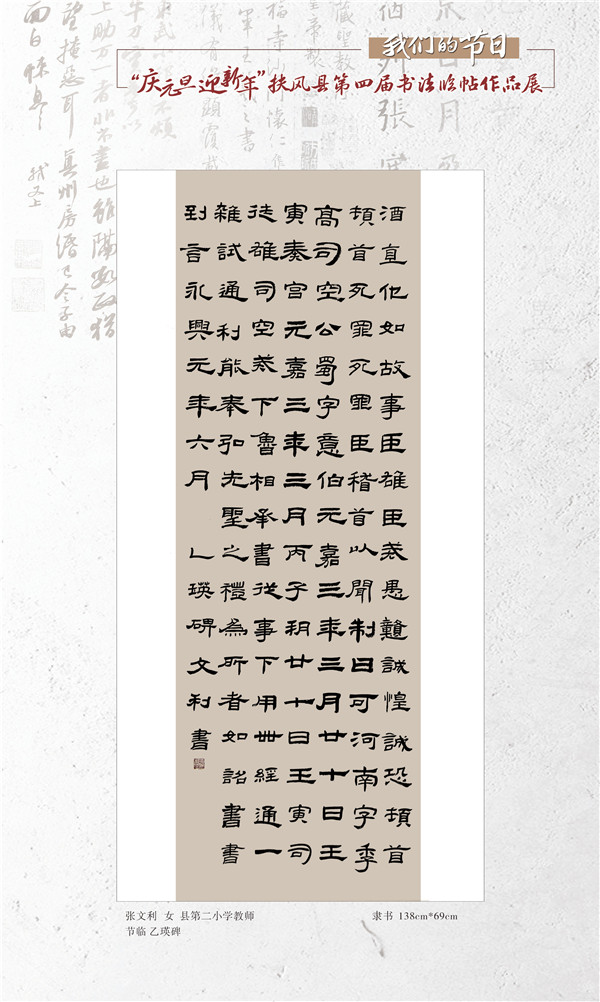 我们的节日
“庆元旦迎新年”扶风县第四届书法临帖作品展
酒直他如故事臣雄臣戒愚戇誠惶誠恐頓首
頓首死罪死罪臣稽首以聞制曰可河南字季
高司空公蜀字意伯元嘉三年三月廿十日壬
寅奏宮元嘉三年三月丙子朔廿十日壬寅司
徒雄司空戒下魯相承書從事下用卌經通一
雜試通利能奉弘先聖之禮為所者如詔書書
到言永興元年六月 乙瑛碑文利書
张文利 女 县第二小学教师
节临 乙瑛碑
隶书 138cm*69cm